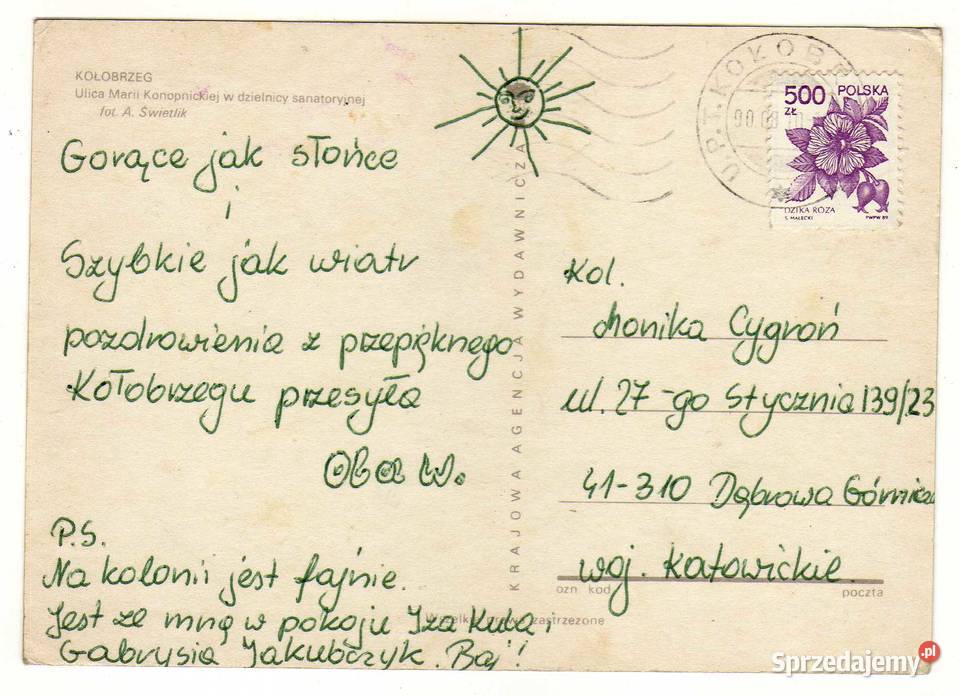 KOŁOBRZEG
Ulica Marii Konopnickiej w dzielnicy sanatoryjnej
fot. A. Świetlik
Gorące jak słońce
i
Szybkie jak wiatr
pozdrowienia z przepięknego
Kołobrzegu przesyła
W.
P.S.
Na kolonii jest fajnie.
Jest ze mną w pokoju Iza Kula i
Gabrysia Jakubczyk. Baj!
KRAJOWA AGENCJA WYDAWNICZA
U.P.T. KOŁOB
500 ZŁ
POLSKA
DZIKA RÓŻA
S. MAŁECKI
PWPW 89
Kol.
Monika Cygroń
ul. 27-go Stycznia 139/23
41-310 Dąbrowa Górnicza
woj. Katowickie.
ozn kod
poczta
Wszelkie prawa zastrzeżone
Sprzedajemy.pl